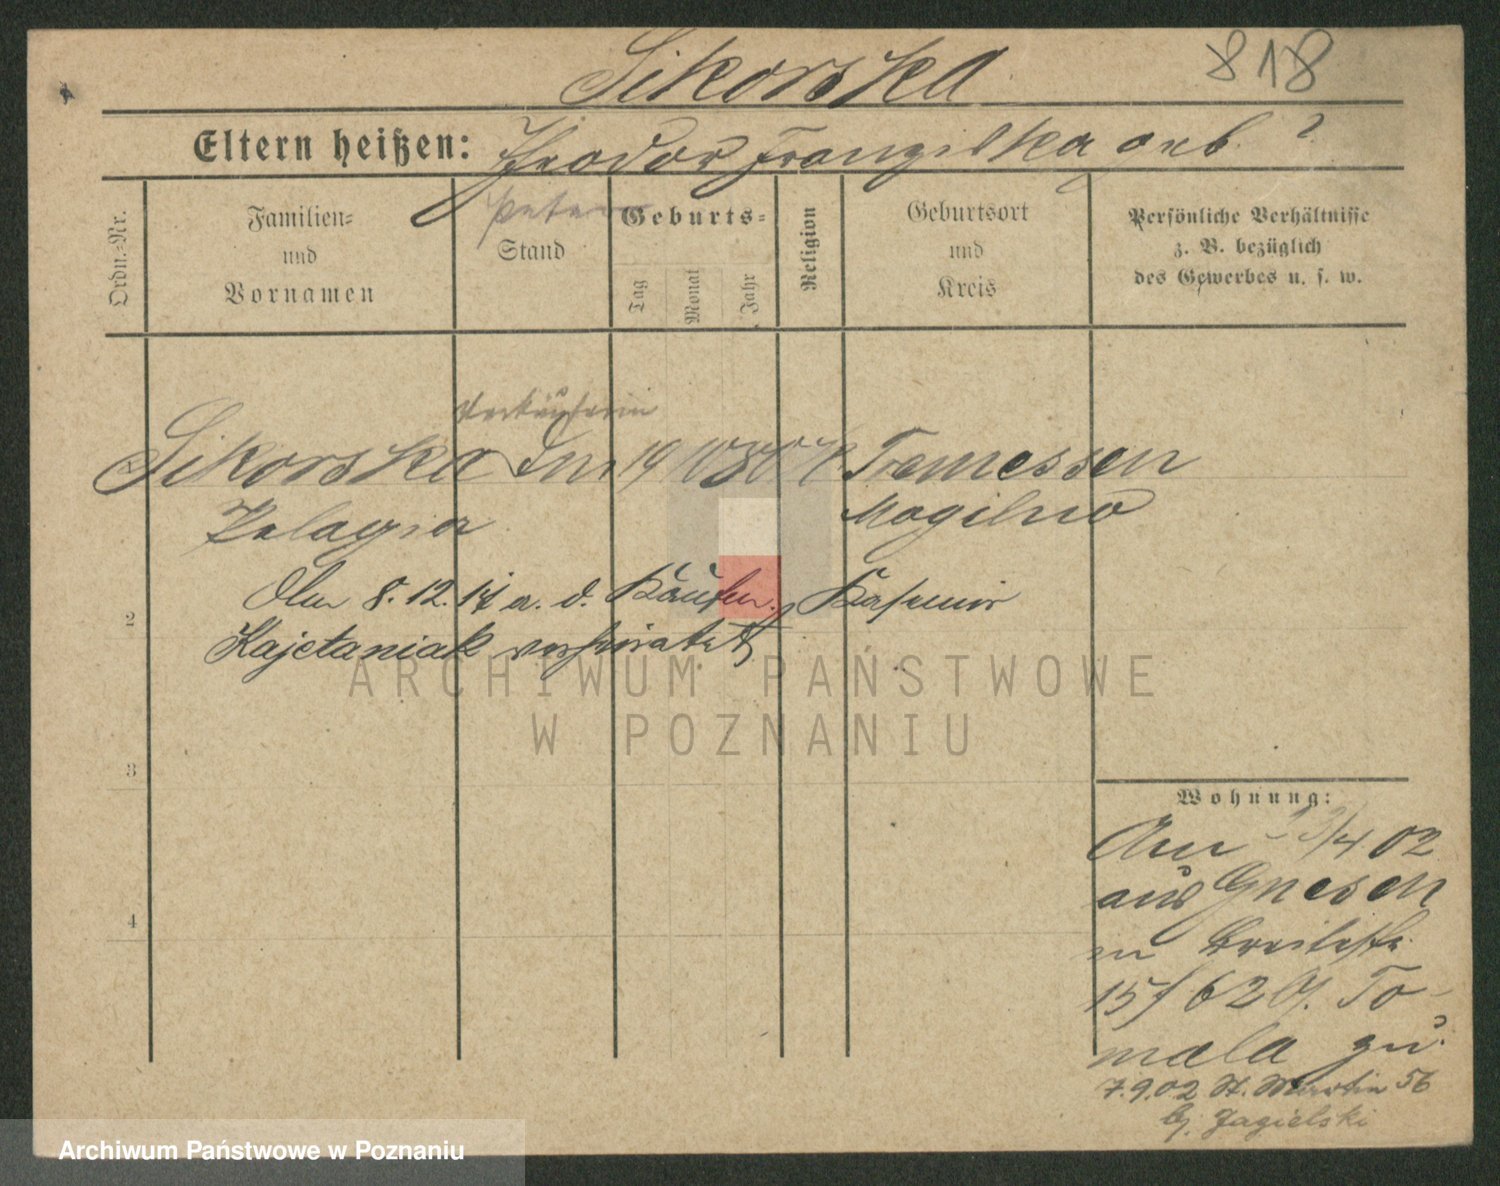 Sikorska 818
Eltern heißen: Theodor Franziska geb. ?
Peter
Ordn.-Nr.
Familien-
und
Vornamen
Stand
Geburts-
Tag
Monat
Jahr
Religion
Geburtsort
und
Kreis
Persönliche Verhältnisse
z. B. bezüglich
des Gewerbes u. s. w.
Verkäuferin
Sikorska 19 10 Tremessen
Pelagia Mogilno
8. 12. 14 a. d. Kaufm. Kasimir
2
Kajetaniak verheiratet
3
4
Wohnung:
An 23/4 02
aus Gnesen
n Breitestr.
15 / b
mala zu.
7.9.02 St. Martin 56
b/. Jagielski
ARCHIWUM PAŃSTWOWE
W POZNANIU
Archiwum Państwowe w Poznaniu